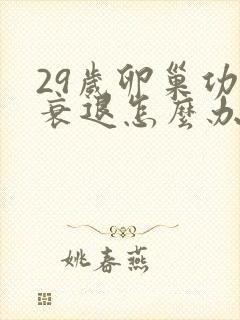 29歲卵巢功
衰退怎麼办
姚春燕